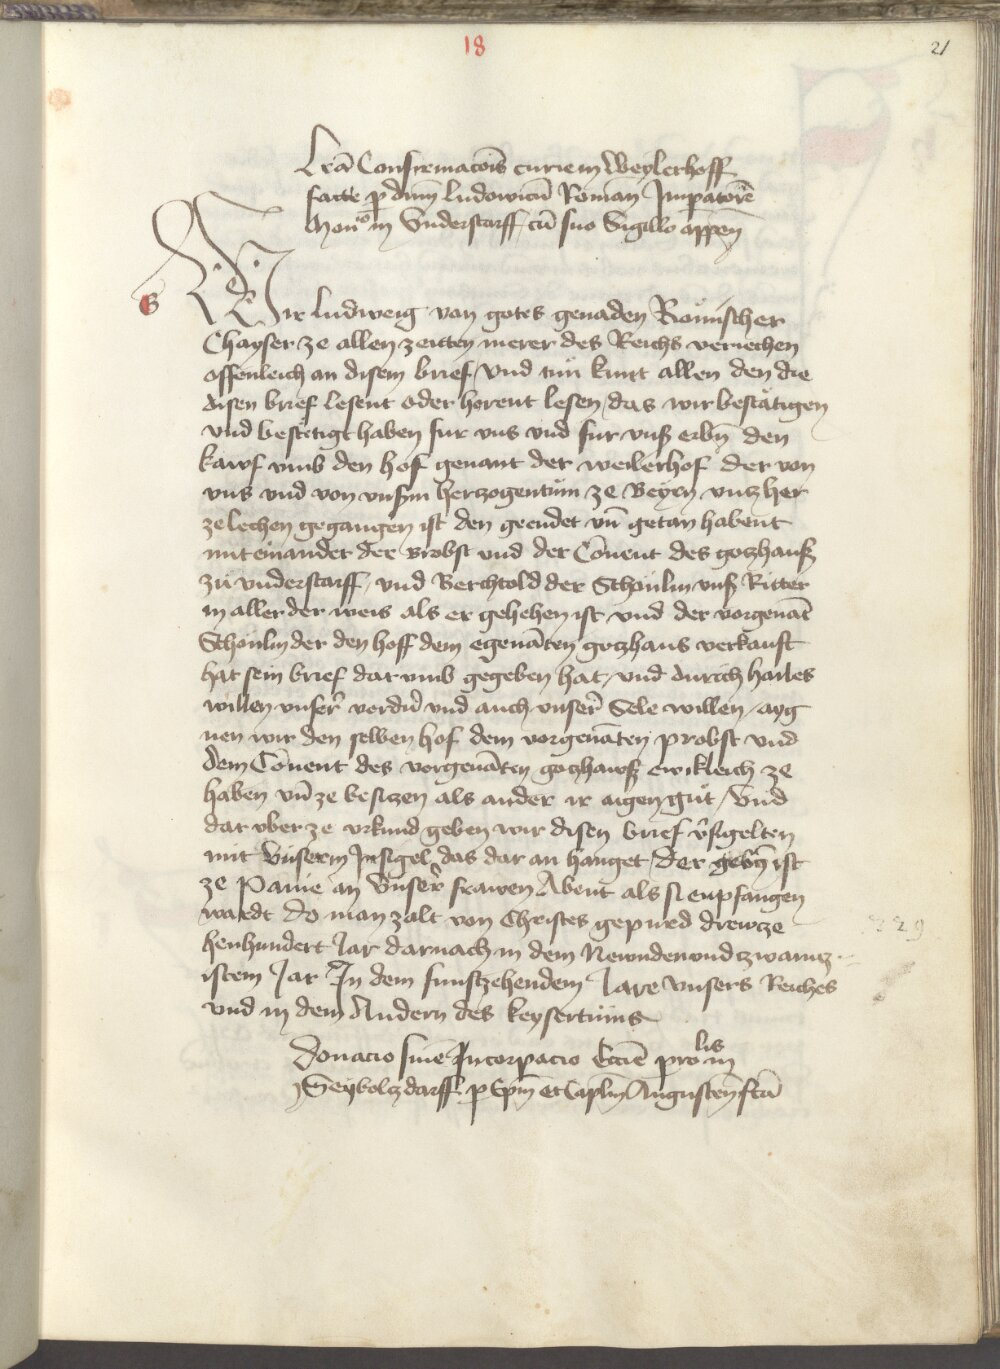 18
21
Lr̄a Confirmacōis curie in Weylerhoff
facte p dn̄m ludowicū Roman Impatorē
Mon̄o in Vnderstorff cū suo Sigillo appen̄
Wir ludweig von gotes genaden Römischer
Chayser ze allen zeitten merer des Reichs veriechen
offenleich an disem brief / vnd tün kunt allen den die
disen brief lesent oder horent lesen / das wir bestätigen
vnd bestetigt haben fur vns vnd fur vnß erbn̄ den
kawf vmb den hof genant der weilerhof der von
vns vnd von vnßm herzogentům ze Beyrn vntz her
ze lechen gegangen ist den geendet vn̄ getan habent
mit einander der Brobst vnd der Cōuent des gotzhauß
zu vnderstorff / vnd Berchtold der Schönlin vnß Ritter
in aller der weis als er gehehen ist vnd der vorgenāt
Schönlin der den hoff dem egenāten gotzhaus verkauft
hat sein brief dar vmb gegeben hat / vnd durich hailes
willen vnser̄ vordn̄ vnd auch vnser̄ Sele willen / ayg
nen wir den selben hof dem vorgenāten probst vnd
dem Cōuent des vorgenāten gotzhawß ewikleich ze
haben vn̄ ze besitzen als ander ir aigen gůt / Vnd
dar vber ze vrkund geben wir disen brief v̄sigelten
mit Vnserem Insigel das dar an hanget / der gebn̄ ist
ze Pauie an Vnser̄ frawen Abent als si enpfangen
wardt do man zalt von Christes gepurd drewze
henhundert Jar darnach in dem Newnden vnd zwaintz
istem Jar In dem funftzehendem Jare Vnsers Reiches
vnd in dem Andern des keysertums
329
Donacio siue Incorpacio Ecc̄e pro lis in
Seyboltzdorff p Ep̄m et Caplm̄ Augusten̄ fc̄ā